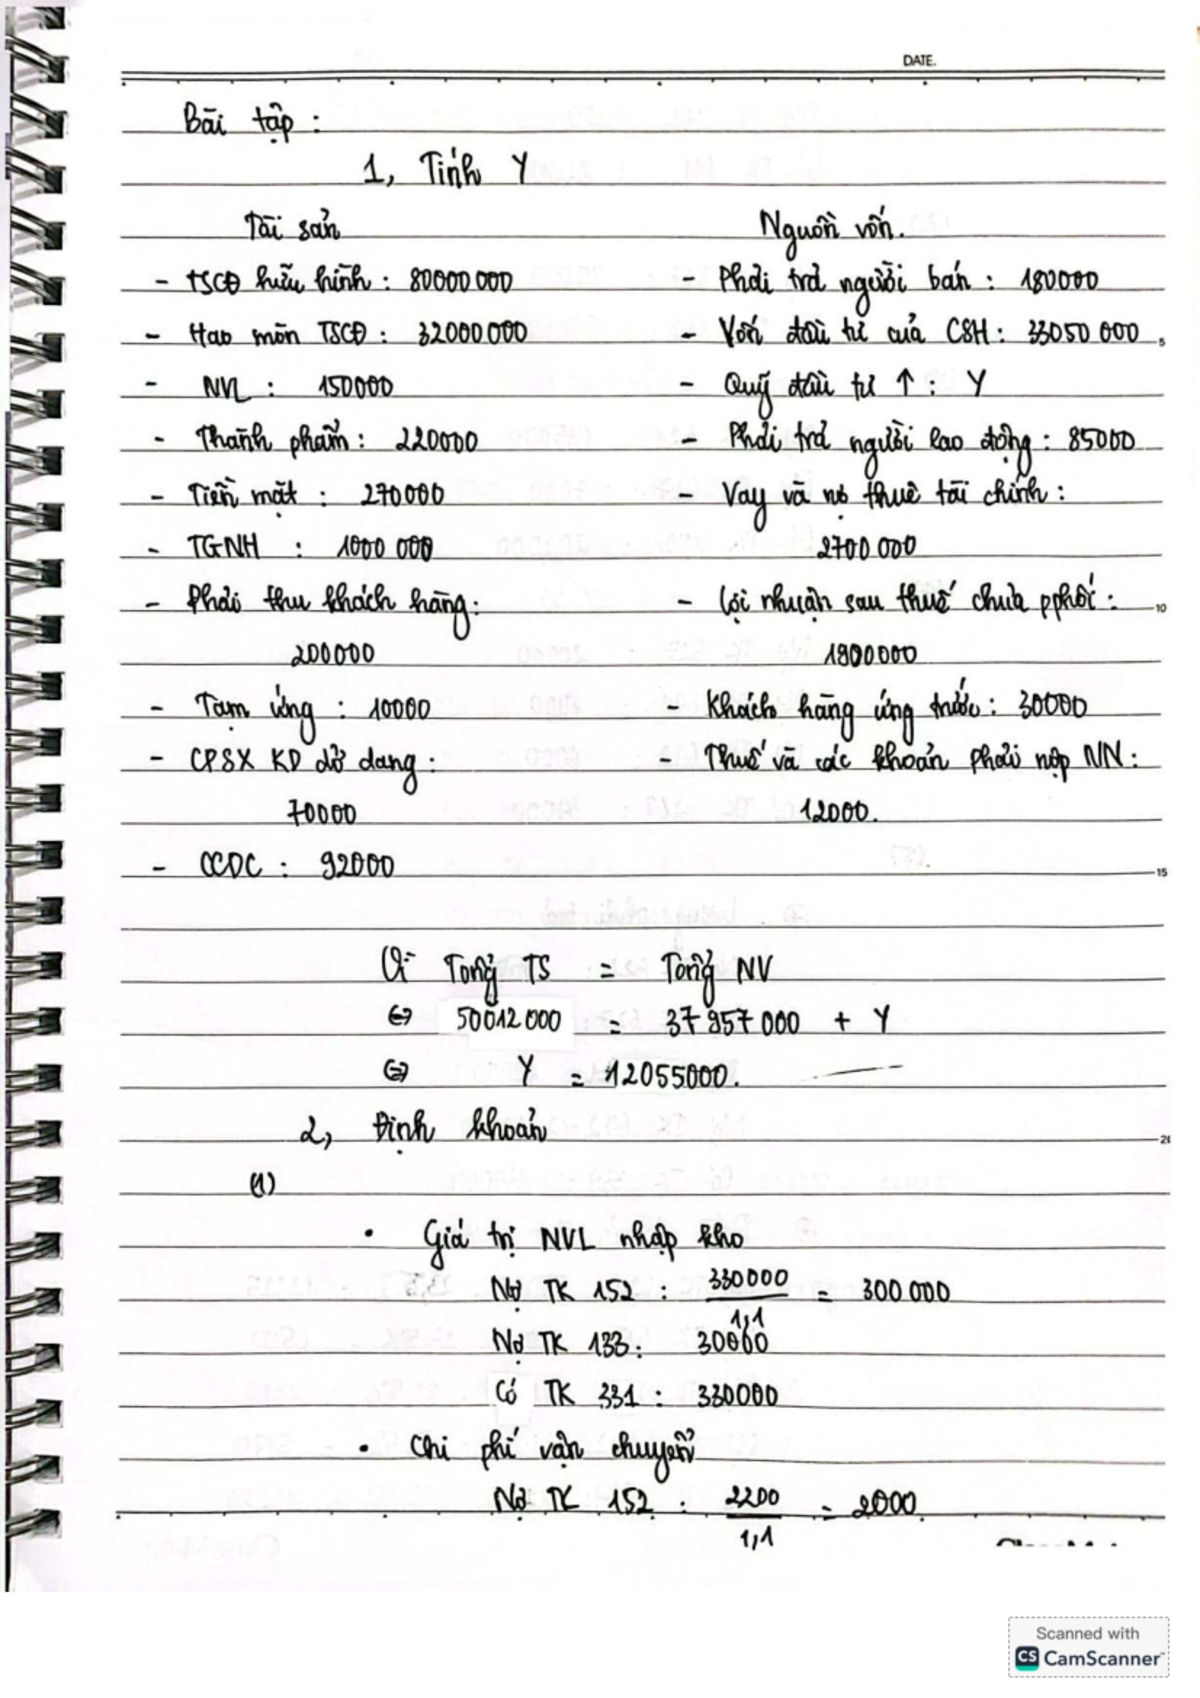 DATE.
Bài tập :
1, Tính Y
Tài sản Nguồn vốn.
- TSCĐ hữu hình : 80000 000 - Phải trả người bán : 180000
- Hao mòn TSCĐ : 32000000 - Vốn đầu tư của CSH : 33050 000
- NVL : 150000 - Quỹ đầu tư ↑ : Y
- Thành phẩm : 220000 - Phải trả người lao động : 85000
- Tiền mặt : 270000 - Vay và nợ thuê tài chính :
- TGNH : 1000 000 2700 000
- Phải thu khách hàng : - Lợi nhuận sau thuế chưa pphối :
200000 1900000
- Tạm ứng : 10000 - Khách hàng ứng trước : 30000
- CPSX KD dở dang : - Thuế và các khoản phải nộp NN :
70000 12000.
- CCDC : 92000
Vì Tổng TS = Tổng NV
⇔ 50012000 = 37 957 000 + Y
⇔ Y = 12055000.
2, Định khoản
(1)
• Giá trị NVL nhập kho
Nợ TK 152 : 330000 / 1,1 = 300 000
Nợ TK 133 : 30000
Có TK 331 : 330000
• Chi phí vận chuyển
Nợ TK 152 : 2200 / 1,1 = 2000
Scanned with
CS CamScanner